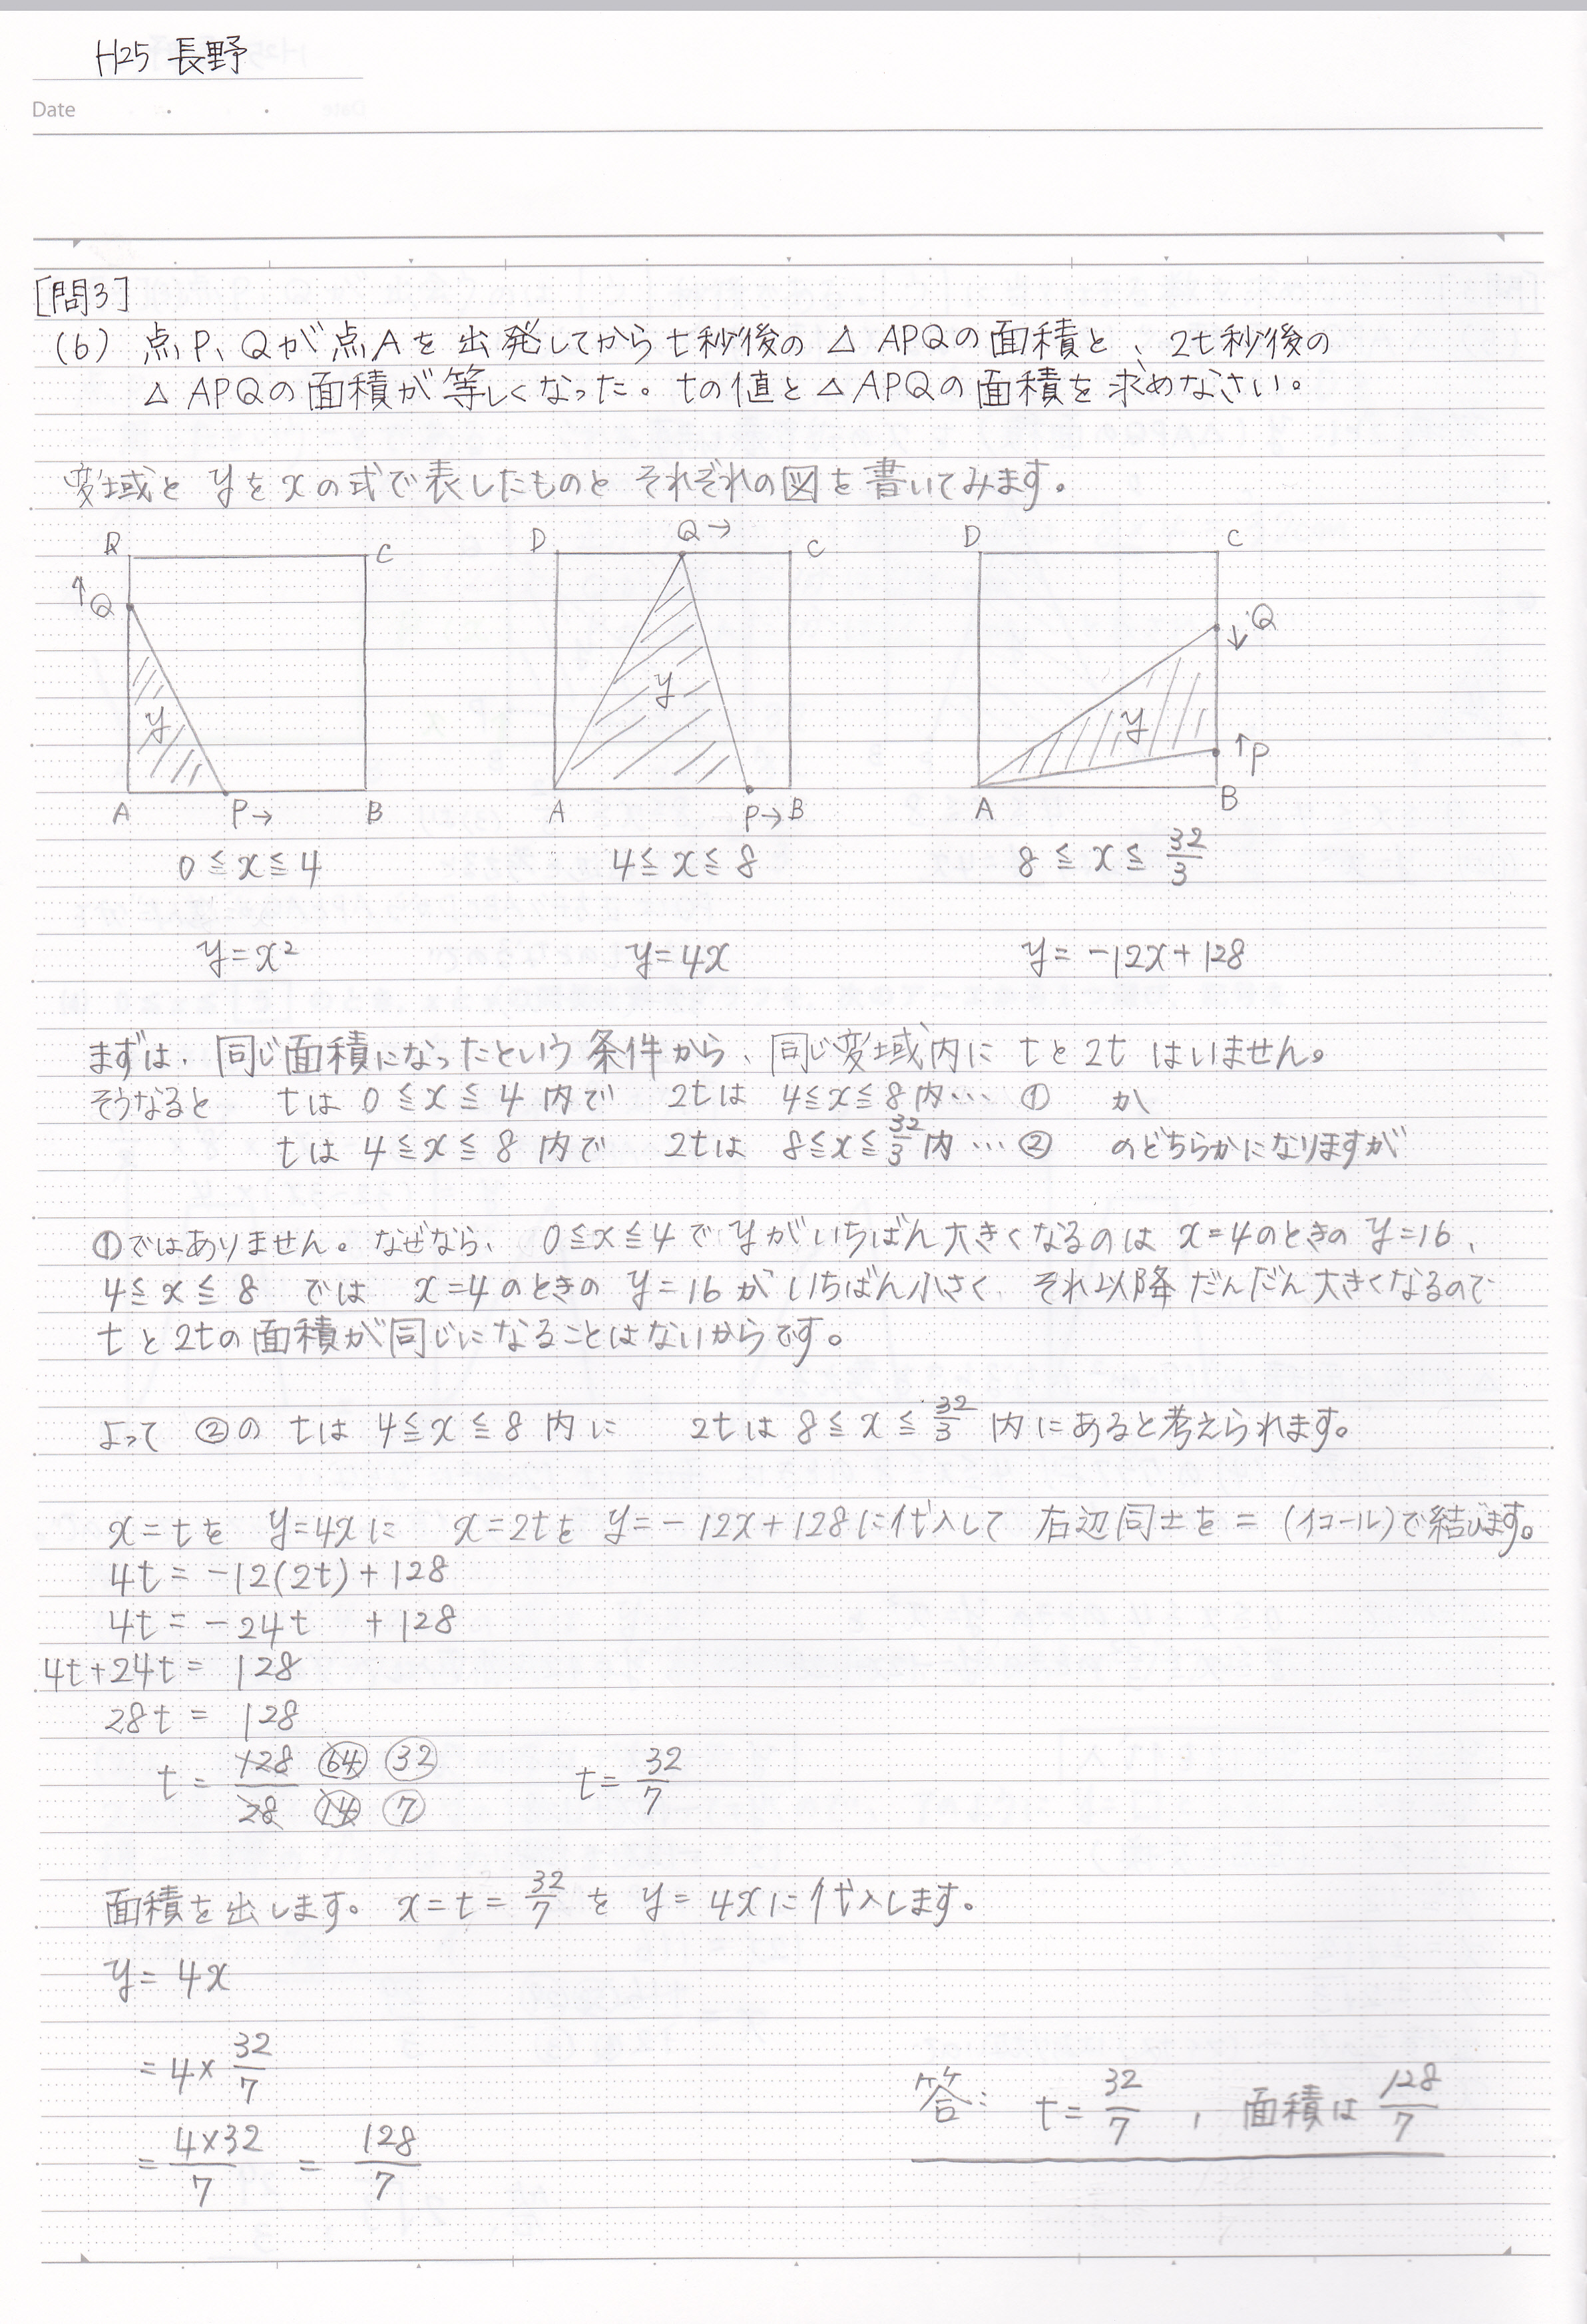 H25 長野
Date
[問3]
(6) 点P、Qが点Aを出発してからt秒後の△APQの面積と、2t秒後の
△APQの面積が等しくなった。tの値と△APQの面積を求めなさい。
変域と yをxの式で表したものと それぞれの図を書いてみます。
D C
↑Q
y
A P→ B
D Q→ C
y
A P→B
D C
Q
↓
y
↑P
A B
0≦x≦4 4≦x≦8 8≦x≦32/3
y=x² y=4x y=-12x+128
まずは、同じ面積になったという条件から、同じ変域内に tと2tはいません。
そうなると tは 0≦x≦4 内で 2tは 4≦x≦8内… ① か
tは 4≦x≦8 内で 2tは 8≦x≦32/3内 … ② のどちらかになりますが
①ではありません。なぜなら、 0≦x≦4で yがいちばん大きくなるのは x=4のときの y=16、
4≦x≦8 では x=4のときの y=16がいちばん小さく、それ以降だんだん大きくなるので
tと2tの面積が同じになることはないからです。
よって ②の tは 4≦x≦8 内に 2tは 8≦x≦32/3 内にあると考えられます。
x=tを y=4xに x=2tを y=-12x+128に代入して 右辺同士を=(イコール)で結びます。
4t=-12(2t)+128
4t=-24t +128
4t+24t= 128
28t= 128
t= 128/28 64/14 32/7 t= 32/7
面積を出します。 x=t=32/7 を y=4xに代入します。
y=4x
=4×32/7
=4×32/7 = 128/7
答: t=32/7 , 面積は 128/7